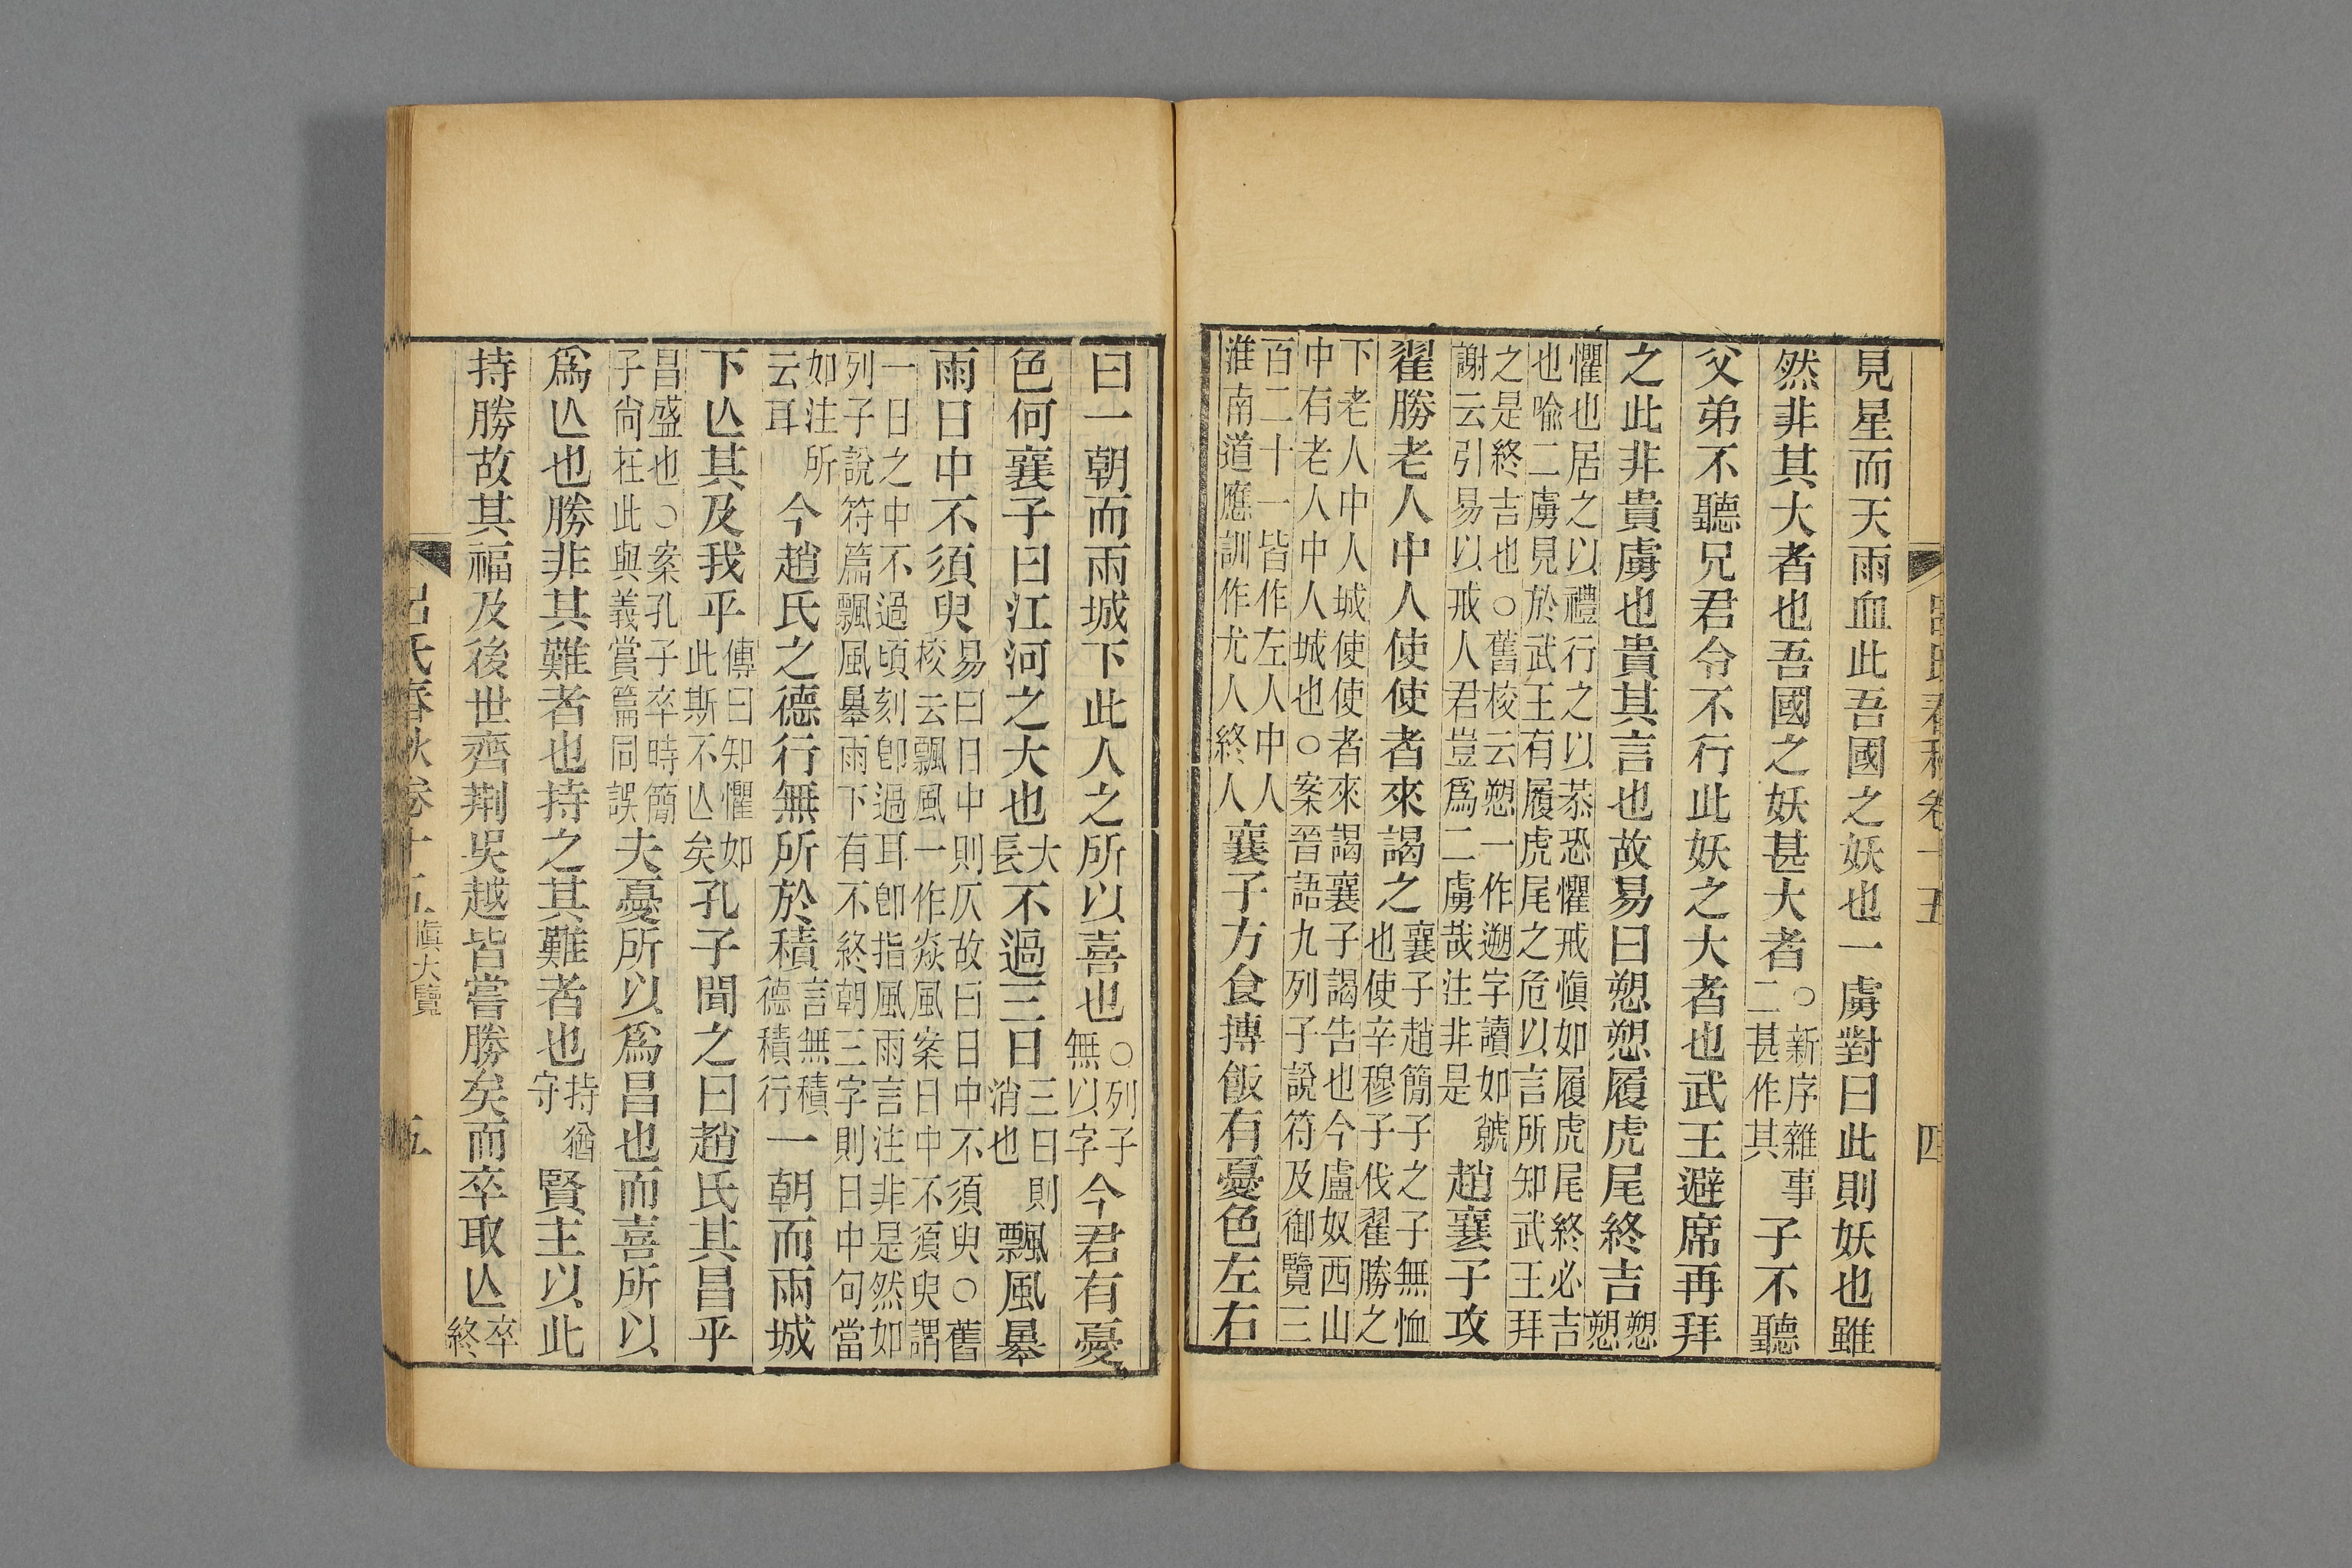 見星而天雨血此吾國之妖也一虜對曰此則妖也雖
然非其大者也吾國之妖甚大者○新序雜事二甚作其子不聽
父弟不聽兄君令不行此妖之大者也武王避席再拜
之此非貴虜也貴其言也故易曰愬愬履虎尾終吉愬愬
懼也居之以禮行之以恭恐懼戒愼如履虎尾終必吉
也喻二虜見於武王有履虎尾之危以言所知武王拜
之是終吉也○舊校云愬一作遡字讀如虩
謝云引易以戒人君豈爲二虜哉注非是趙襄子攻
翟勝老人中人使使者來謁之襄子趙簡子之子無恤也使辛穆子伐翟勝之
下老人中人城使使者來謁襄子謁告也今盧奴西山
中有老人中人城也○案晉語九列子說符及御覽三
百二十一皆作左人中人
淮南道應訓作尤人終人襄子方食摶飯有憂色左右
呂氏春秋卷十五
四
曰一朝而兩城下此人之所以喜也○列子無以字今君有憂
色何襄子曰江河之大也大長不過三日三日則消也飄風暴
雨日中不須臾易曰日中則仄故曰日中不須臾○舊校云飄風一作焱風案日中不須臾謂
一日之中不過頃刻卽過耳卽指風雨言注非是然如
列子說符篇飄風暴雨下有不終朝三字則日中句當
如注所云耳今趙氏之德行無所於積言無積德積行一朝而兩城
下亾其及我乎傳曰知懼如此斯不亾矣孔子聞之曰趙氏其昌乎
昌盛也○案孔子卒時簡子尙在此與義賞篇同誤夫憂所以爲昌也而喜所以
爲亾也勝非其難者也持之其難者也持猶守賢主以此
持勝故其福及後世齊荆吳越皆嘗勝矣而卒取亾卒終
呂氏春秋卷十五
愼大覽
五